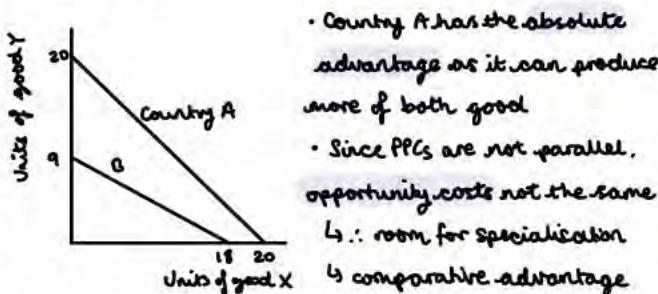 Units of good Y
20
9
Country A
B
18 20
Units of good X
• Country A has the absolute
advantage as it can produce
more of both good
• Since PPCs are not parallel,
opportunity costs not the same
↳ ∴ room for specialisation
↳ comparative advantage